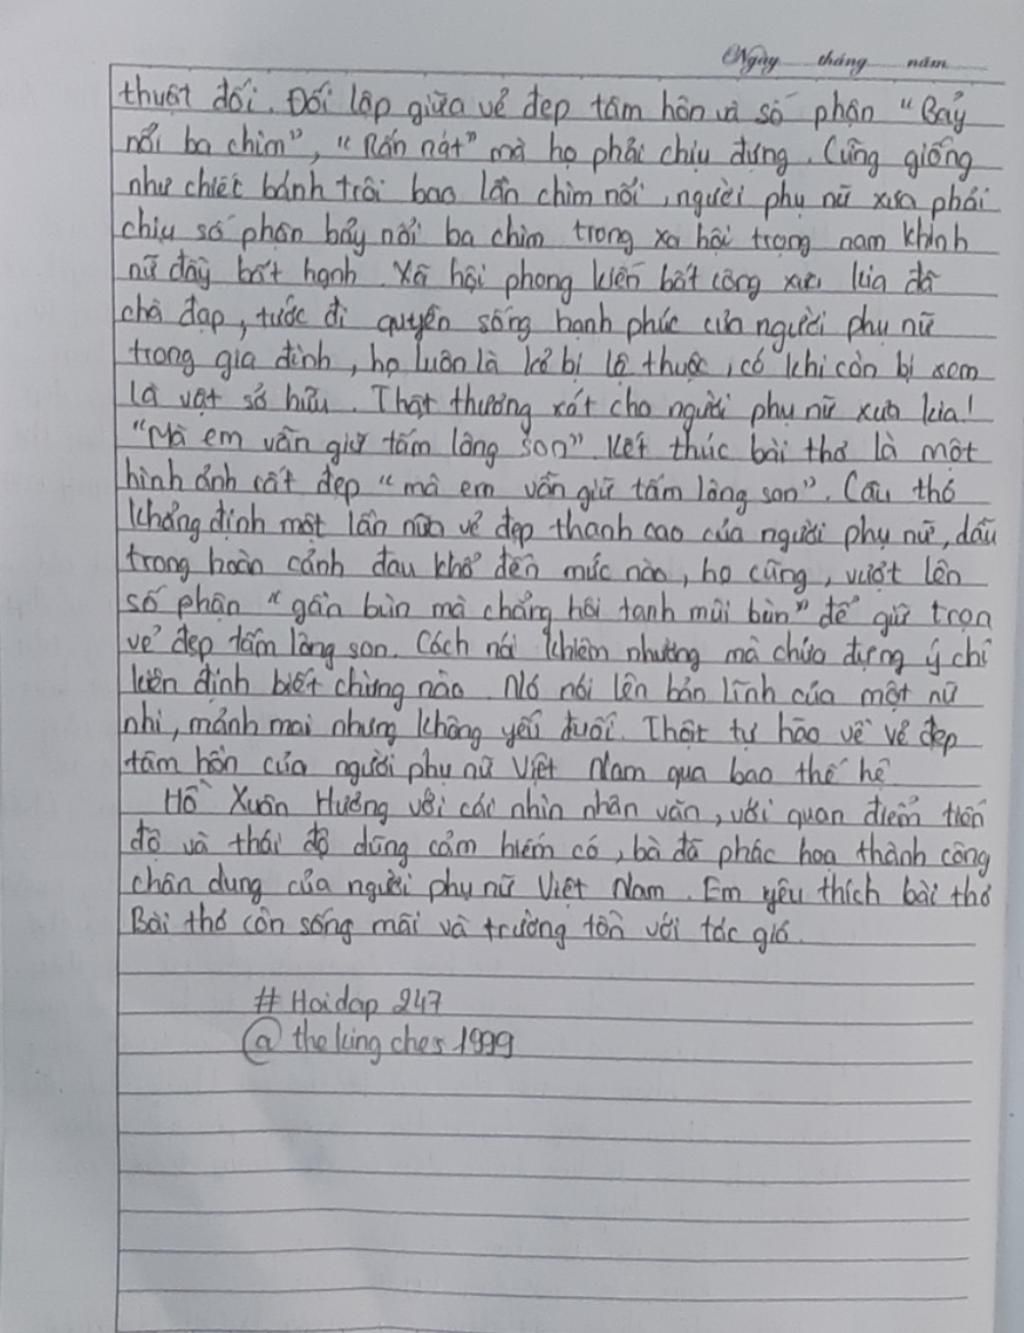 Ngày tháng năm
thuật đối. Đối lập giữa vẻ đẹp tâm hồn và số phận "Bảy
nổi ba chìm", "Rắn nát" mà họ phải chịu đựng. Cũng giống
như chiếc bánh trôi bao lần chìm nổi, người phụ nữ xưa phải
chịu số phận bảy nổi ba chìm trong xa hội trọng nam khinh
nữ đầy bất hạnh. Xã hội phong kiến bất công xưa kia đã
chà đạp, tước đi quyền sống hạnh phúc của người phụ nữ
trong gia đình, họ luôn là kẻ bị lệ thuộc, có khi còn bị xem
là vật sở hữu. Thật thương xót cho người phụ nữ xưa kia!
"Mà em vẫn giữ tấm lòng son". Kết thúc bài thơ là một
hình ảnh rất đẹp "mà em vẫn giữ tấm lòng son". Câu thơ
khẳng định một lần nữa vẻ đẹp thanh cao của người phụ nữ, dẫu
trong hoàn cảnh đau khổ đến mức nào, họ cũng, vượt lên
số phận "gần bùn mà chẳng hôi tanh mùi bùn" để giữ trọn
vẻ đẹp tấm lòng son. Cách nói khiêm nhường mà chứa đựng ý chí
kiên định biết chừng nào. Nó nói lên bản lĩnh của một nữ
nhi, mảnh mai nhưng không yếu đuối. Thật tự hào về vẻ đẹp
tâm hồn của người phụ nữ Việt Nam qua bao thế hệ
Hồ Xuân Hương với các nhìn nhân văn, với quan điểm tiến
độ và thái độ dũng cảm hiếm có, bà đã phác họa thành công
chân dung của người phụ nữ Việt Nam. Em yêu thích bài thơ
Bài thơ còn sống mãi và trường tồn với tác giả.
# Hoidap 247
@ the king ches 1999